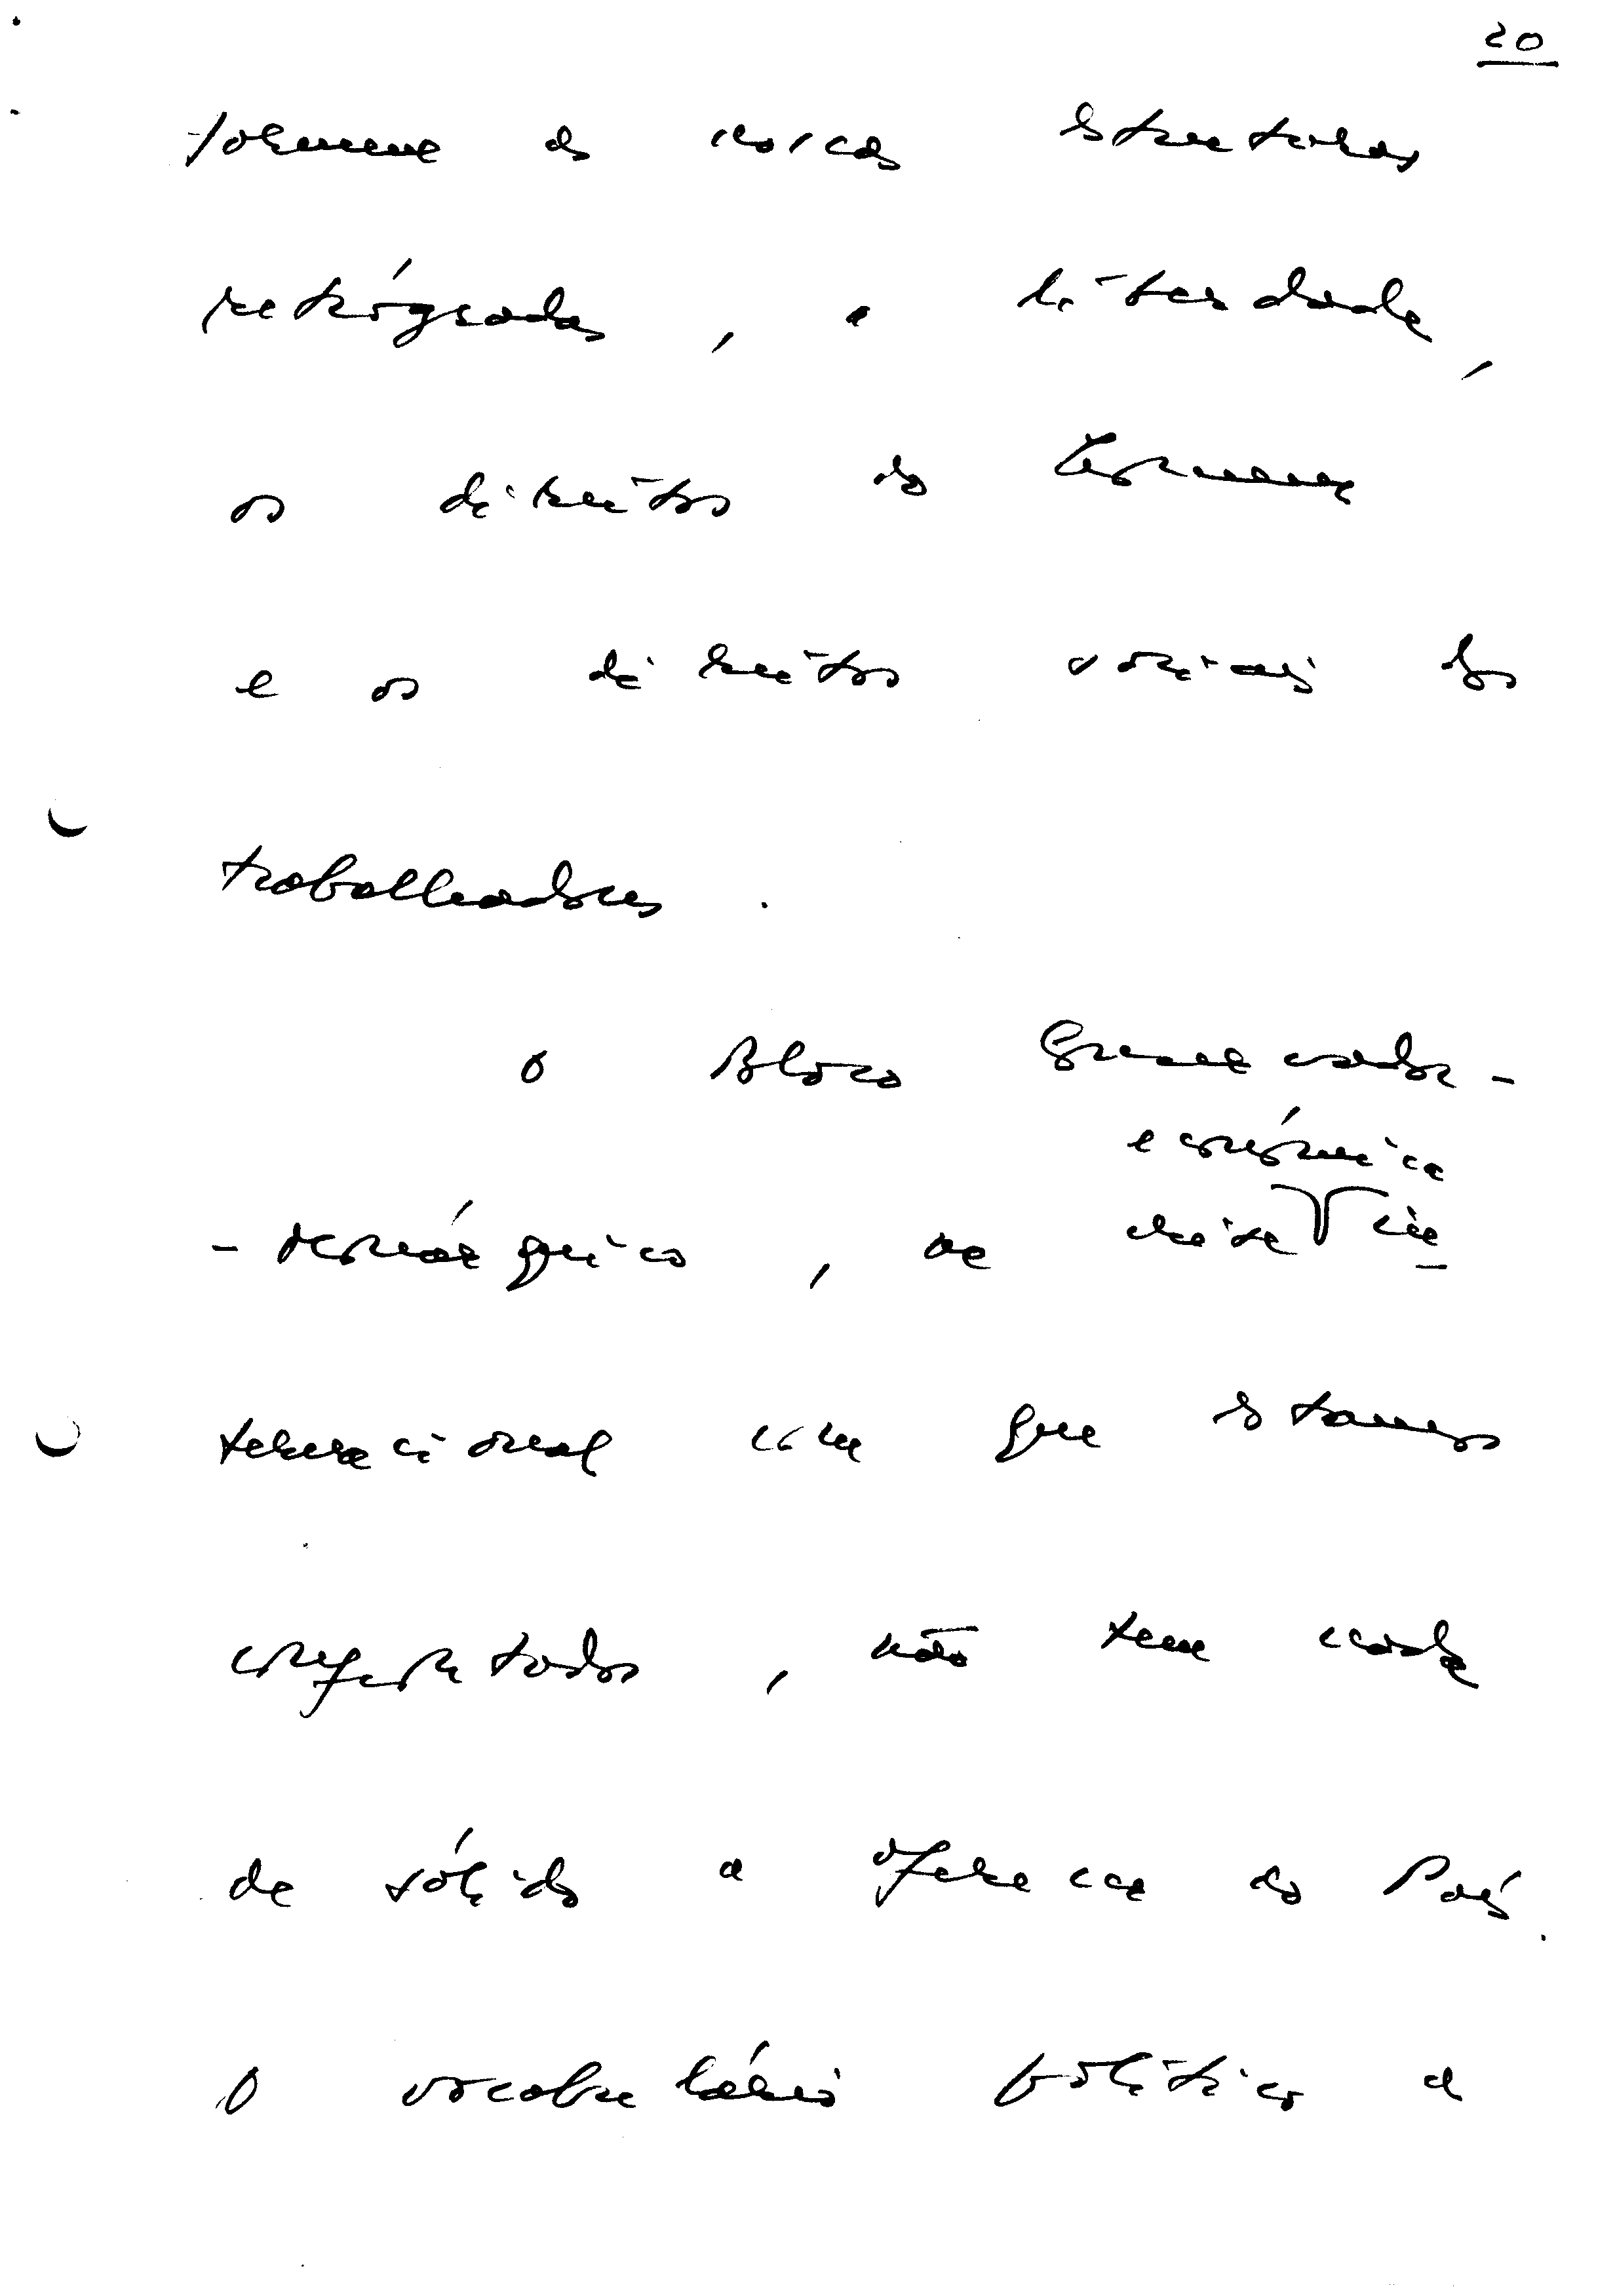 20
as nossas estruturas
retrógradas, a liberdade,
os direitos do homem
e os direitos sociais dos
trabalhadores.
O Bloco Conservador-
económica
-monárquico, na crise in-
ternacional com que estamos
confrontados, não tem nada
de sólido a oferecer ao País.
O vocabulário político a